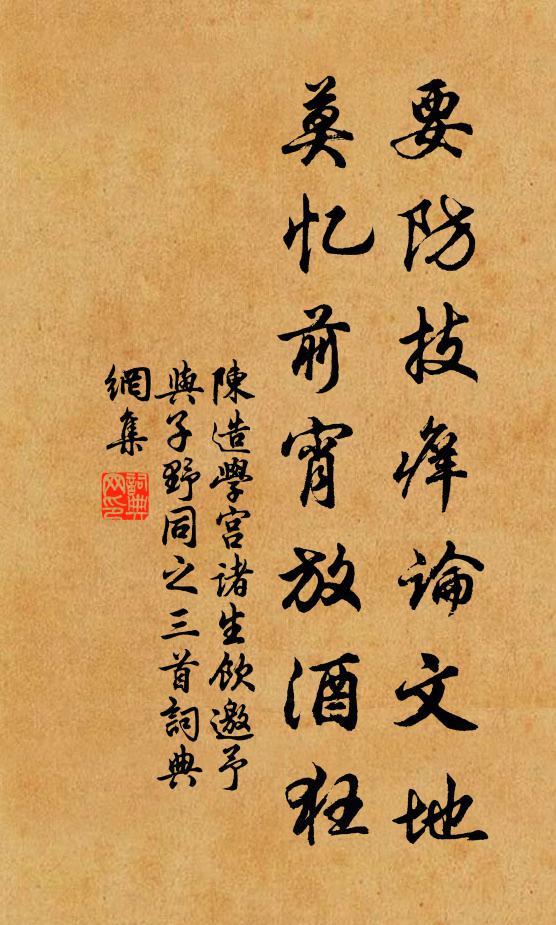 要防技癢論文地
莫忆前宵放酒狂
陳造學宮諸生飲邀予
與子野同之三首詞典
網集
詞典
网印